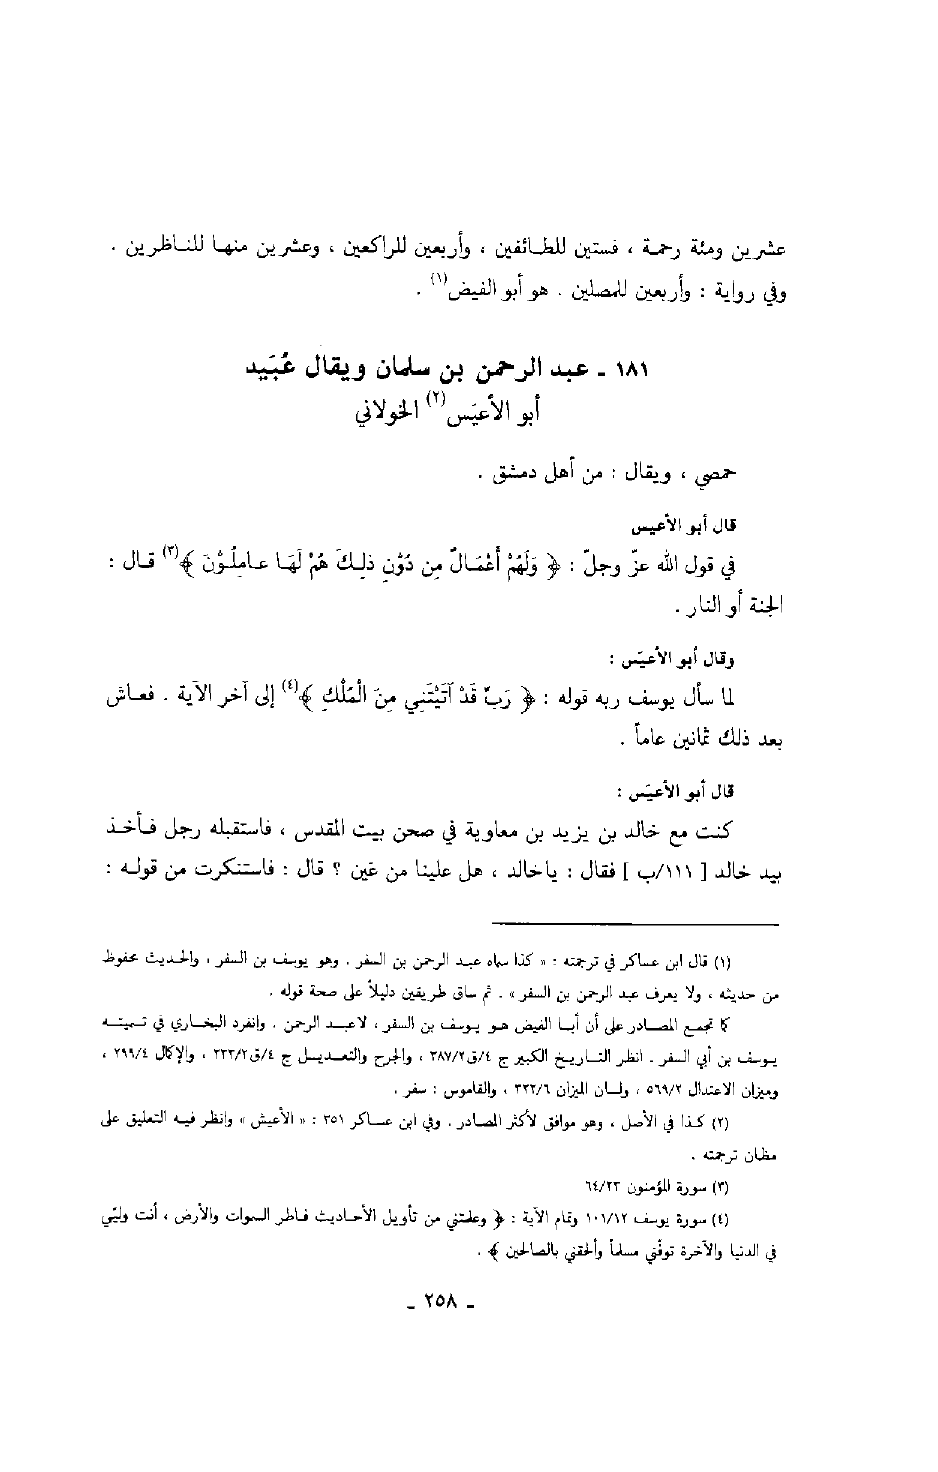 عشرين ومئة رحمة ، فستين للطائفين ، وأربعين للراكعين ، وعشرين منها للناظرين .
وفي رواية : وأربعين للمصلين . هو أبو الفيض(١) .
١٨١ ـ عبد الرحمن بن سلمان ويقال عُبَيد
أبو الأعيَس(٢) الخولاني
حمصي ، ويقال : من أهل دمشق .
قال أبو الأعيس
في قول الله عزّ وجلّ : ﴿ وَلَهُمْ أَعْمَالٌ مِن دُوْنِ ذلِكَ هُمْ لَهَا عامِلُوْنَ ﴾(٣) قال :
الجنة أو النار .
وقال أبو الأعيَس :
لما سأل يوسف ربه قوله : ﴿ رَبِّ قَدْ آتَيْتَنِي مِنَ الْمُلْكِ ﴾(٤) إلى آخر الآية . فعاش
بعد ذلك ثمانين عاماً .
قال أبو الأعيَس :
كنت مع خالد بن يزيد بن معاوية في صحن بيت المقدس ، فاستقبله رجل فأخذ
بيد خالد [ ١١١/ب ] فقال : ياخالد ، هل علينا من عَين ؟ قال : فاستنكرت من قوله :
(١) قال ابن عساكر في ترجمته : « كذا سماه عبد الرحمن بن السفر . وهو يوسف بن السفر ، والحديث محفوظ
من حديثه ، ولا يعرف عبد الرحمن بن السفر » . ثم ساق طريقين دليلاً على صحة قوله .
كما تجمع المصادر على أن أبا الفيض هو يوسف بن السفر ، لاعبد الرحمن . وانفرد البخاري في تسميته
يوسف بن أبي السفر . انظر التاريخ الكبير ج ٤/ق٣٨٧/٢ ، والجرح والتعديل ج ٤/ق٢٣٣/٢ ، والإكمال ٢٩٩/٤ ،
وميزان الاعتدال ٥٦٩/٢ ، ولسان الميزان ٣٣٢/٦ ، والقاموس : سفر .
(٢) كذا في الأصل ، وهو موافق لأكثر المصادر . وفي ابن عساكر ٣٥١ : « الأعيش » وانظر فيه التعليق على
مظان ترجمته .
(٣) سورة المؤمنون ٦٤/٢٣
(٤) سورة يوسف ١٠١/١٢ وتمام الآية : ﴿ وعلمتني من تأويل الأحاديث فاطر السموات والأرض ، أنت وليّي
في الدنيا والآخرة توفّني مسلماً وألحقني بالصالحين ﴾ .
ـ ٢٥٨ ـ